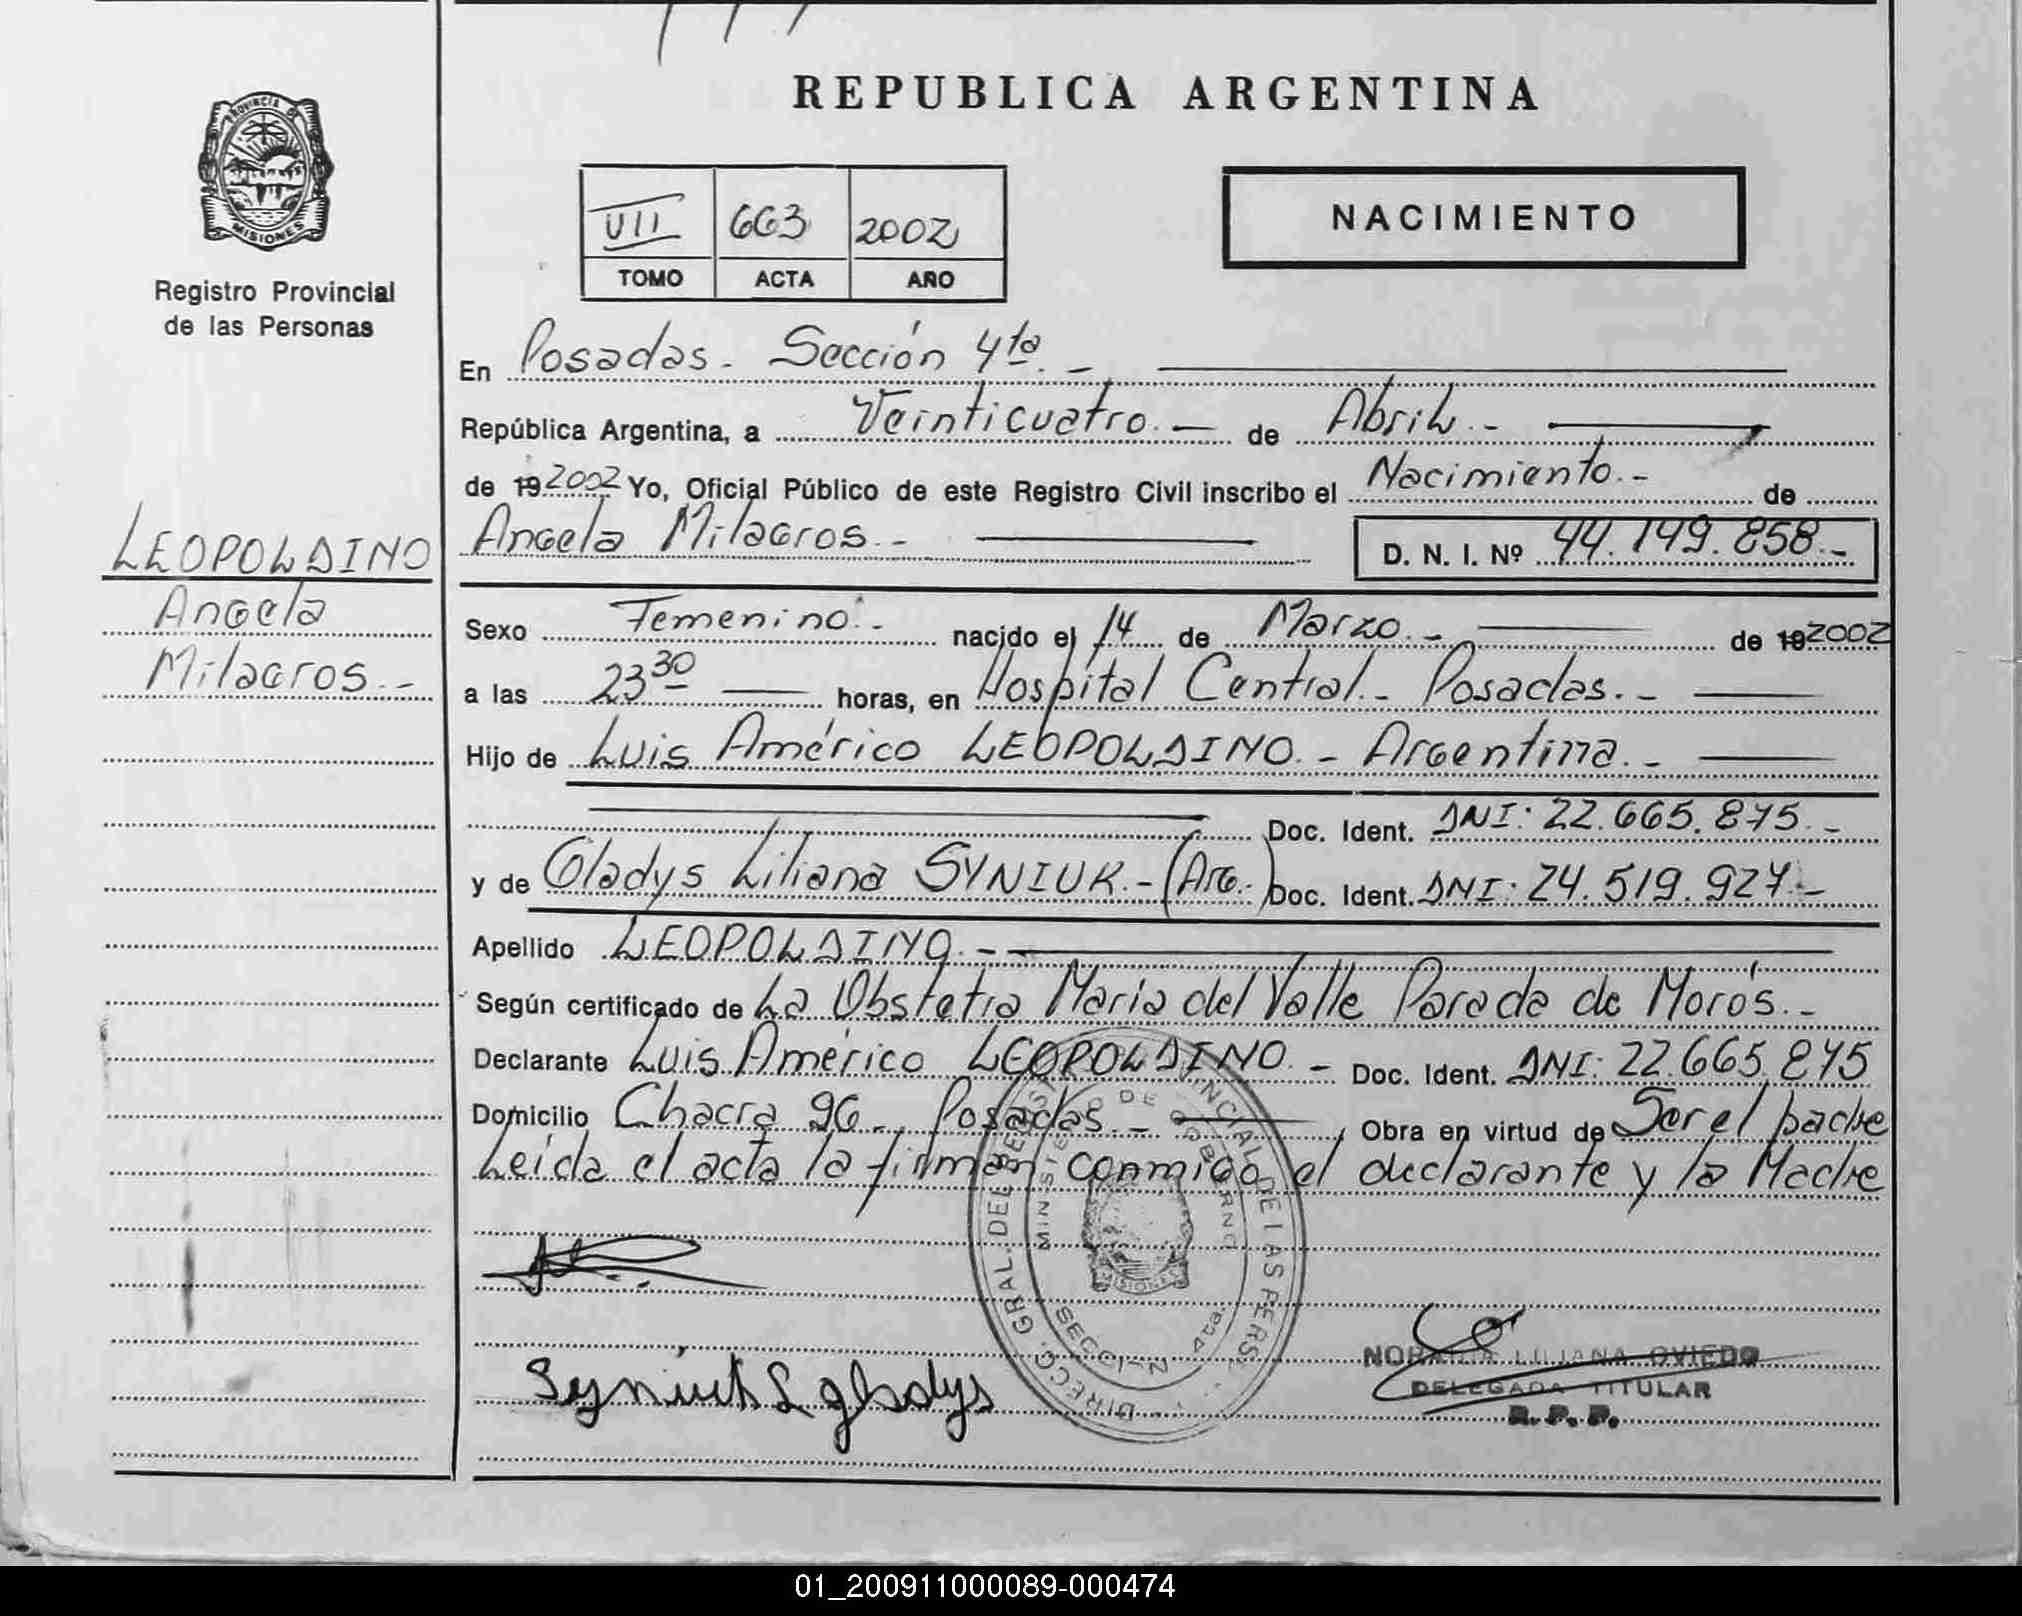 REPUBLICA ARGENTINA
PROVINCIA DE
MISIONES
Registro Provincial
de las Personas
VII 663 2002
TOMO ACTA AÑO
NACIMIENTO
En Posadas - Sección 4ta. -
República Argentina, a Veinticuatro. - de Abril. -
de 19 2002 Yo, Oficial Público de este Registro Civil inscribo el Nacimiento. - de
Angela Milagros. - D. N. I. Nº 44.149.858. -
LEOPOLDINO
Angela
Milagros. -
Sexo Femenino. - nacido el 14 de Marzo. - de 19 2002
a las 23 30 horas, en Hospital Central. - Posadas. -
Hijo de Luis Américo LEOPOLDINO. - Argentina. -
Doc. Ident. DNI: 22.665.875. -
y de Gladys Liliana SYNIUK. - (Arg.) Doc. Ident. DNI: 24.519.927. -
Apellido LEOPOLDINO. -
Según certificado de La Obstetra Maria del Valle Parada de Morós. -
Declarante Luis Américo LEOPOLDINO. - Doc. Ident. DNI: 22.665.875
Domicilio Chacra 96. Posadas. - , Obra en virtud de Ser el padre
Leída el acta la firman conmigo el declarante y la Madre
DIRECC. GRAL. DEL REG. PROVINCIAL DE LAS PERS.
MINISTERIO DE GOBIERNO
MISIONES
SECCION 4ta.
Syniuk L gladys
LILIANA OVIEDO
DELEGADA TITULAR
R. P. P.
01_200911000089-000474